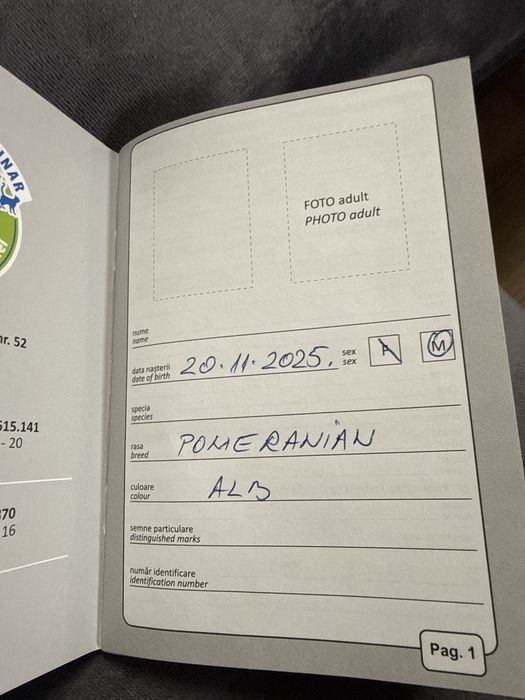 INAR
nr. 52
515.141
- 20
370
16
FOTO adult
PHOTO adult
nume
name
data nașterii
date of birth
20.11.2025.
sex
sex
F
M
specia
species
rasa
breed
POMERANIAN
culoare
colour
ALB
semne particulare
distinguished marks
număr identificare
identification number
Pag. 1